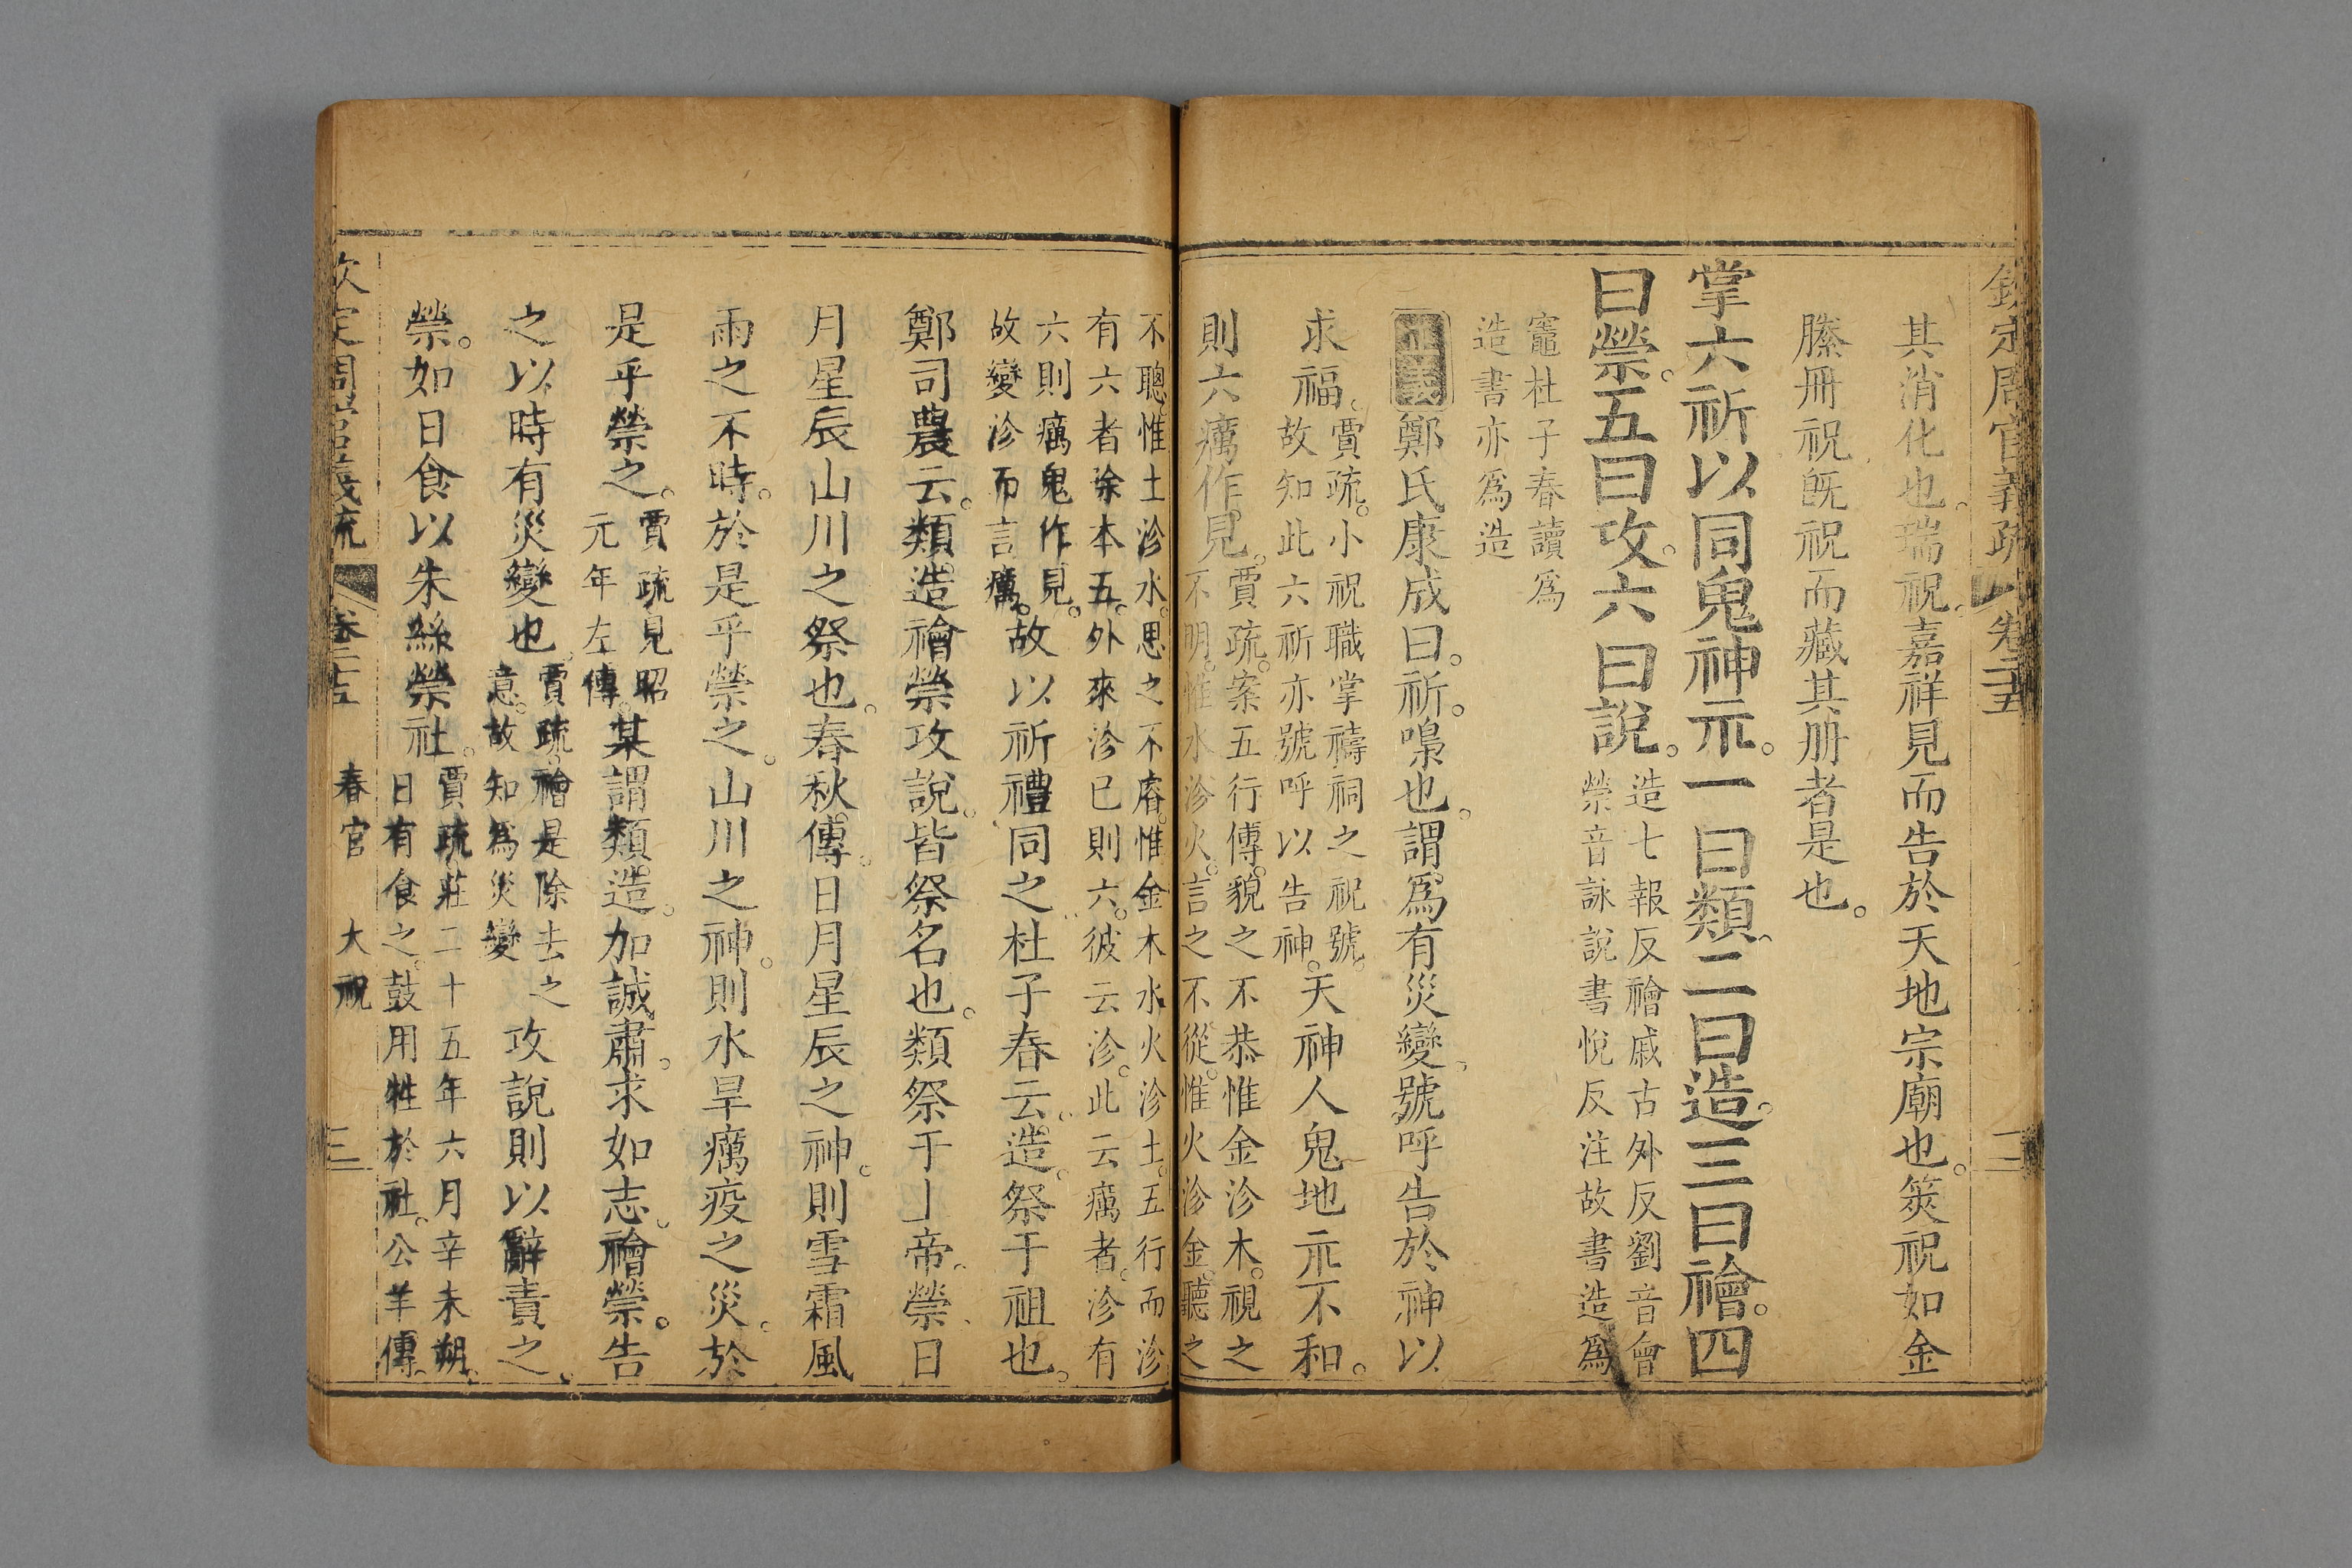 欽定周官義疏 卷二十五 二
其消化也瑞祝嘉祥見而告於天地宗廟也筴祝如金
縢冊祝旣祝而藏其册者是也
掌六祈以同鬼神示一曰類二曰造三曰禬四
曰禜五曰攻六曰說
造七報反禬戚古外反劉音會
禜音詠說書悅反注故書造爲
竈杜子春讀爲
造書亦爲造
正義鄭氏康成曰祈嘄也謂爲有災變號呼告於神以
求福
賈疏小祝職掌禱祠之祝號
故知此六祈亦號呼以告神
天神人鬼地示不和
則六癘作見
賈疏案五行傳貌之不恭惟金沴木視之
不明惟水沴火言之不從惟火沴金聽之
不聰惟土沴水思之不睿惟金木水火沴土五行而沴
有六者除本五外來沴已則六彼云沴此云癘者沴有
六則癘鬼作見
故變沴而言癘
故以祈禮同之杜子春云造祭于祖也
鄭司農云類造禬禜攻說皆祭名也類祭于丄帝禜日
月星辰山川之祭也春秋傳日月星辰之神則雪霜風
雨之不時於是乎禜之山川之神則水旱癘疫之災於
是乎禜之
賈疏見昭
元年左傳
某謂類造加誠肅求如志禬禜告
之以時有災變也
賈疏禬是除去之
意故知爲災變
攻說則以辭責之
禜如日食以朱絲禜社
賈疏莊二十五年六月辛未朔
日有食之鼓用牲於社公羊傳
欽定周官義疏 卷二十五 春官 大祝 三